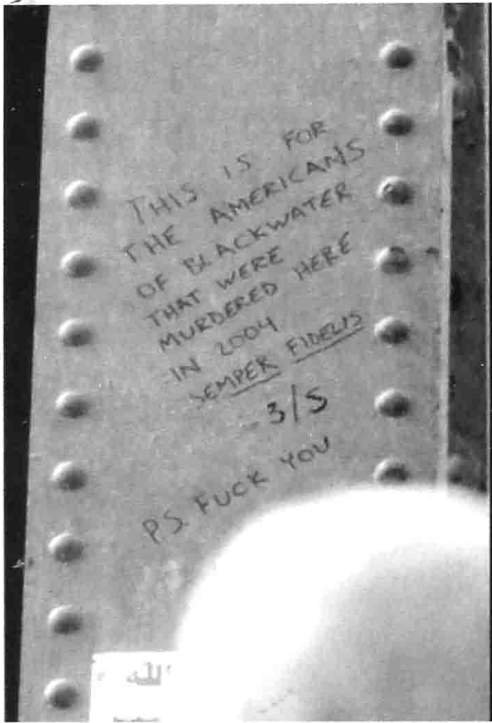 THIS IS FOR
THE AMERICANS
OF BLACKWATER
THAT WERE
MURDERED HERE
IN 2004
SEMPER FIDELIS
3/5
P.S. FUCK YOU
الله